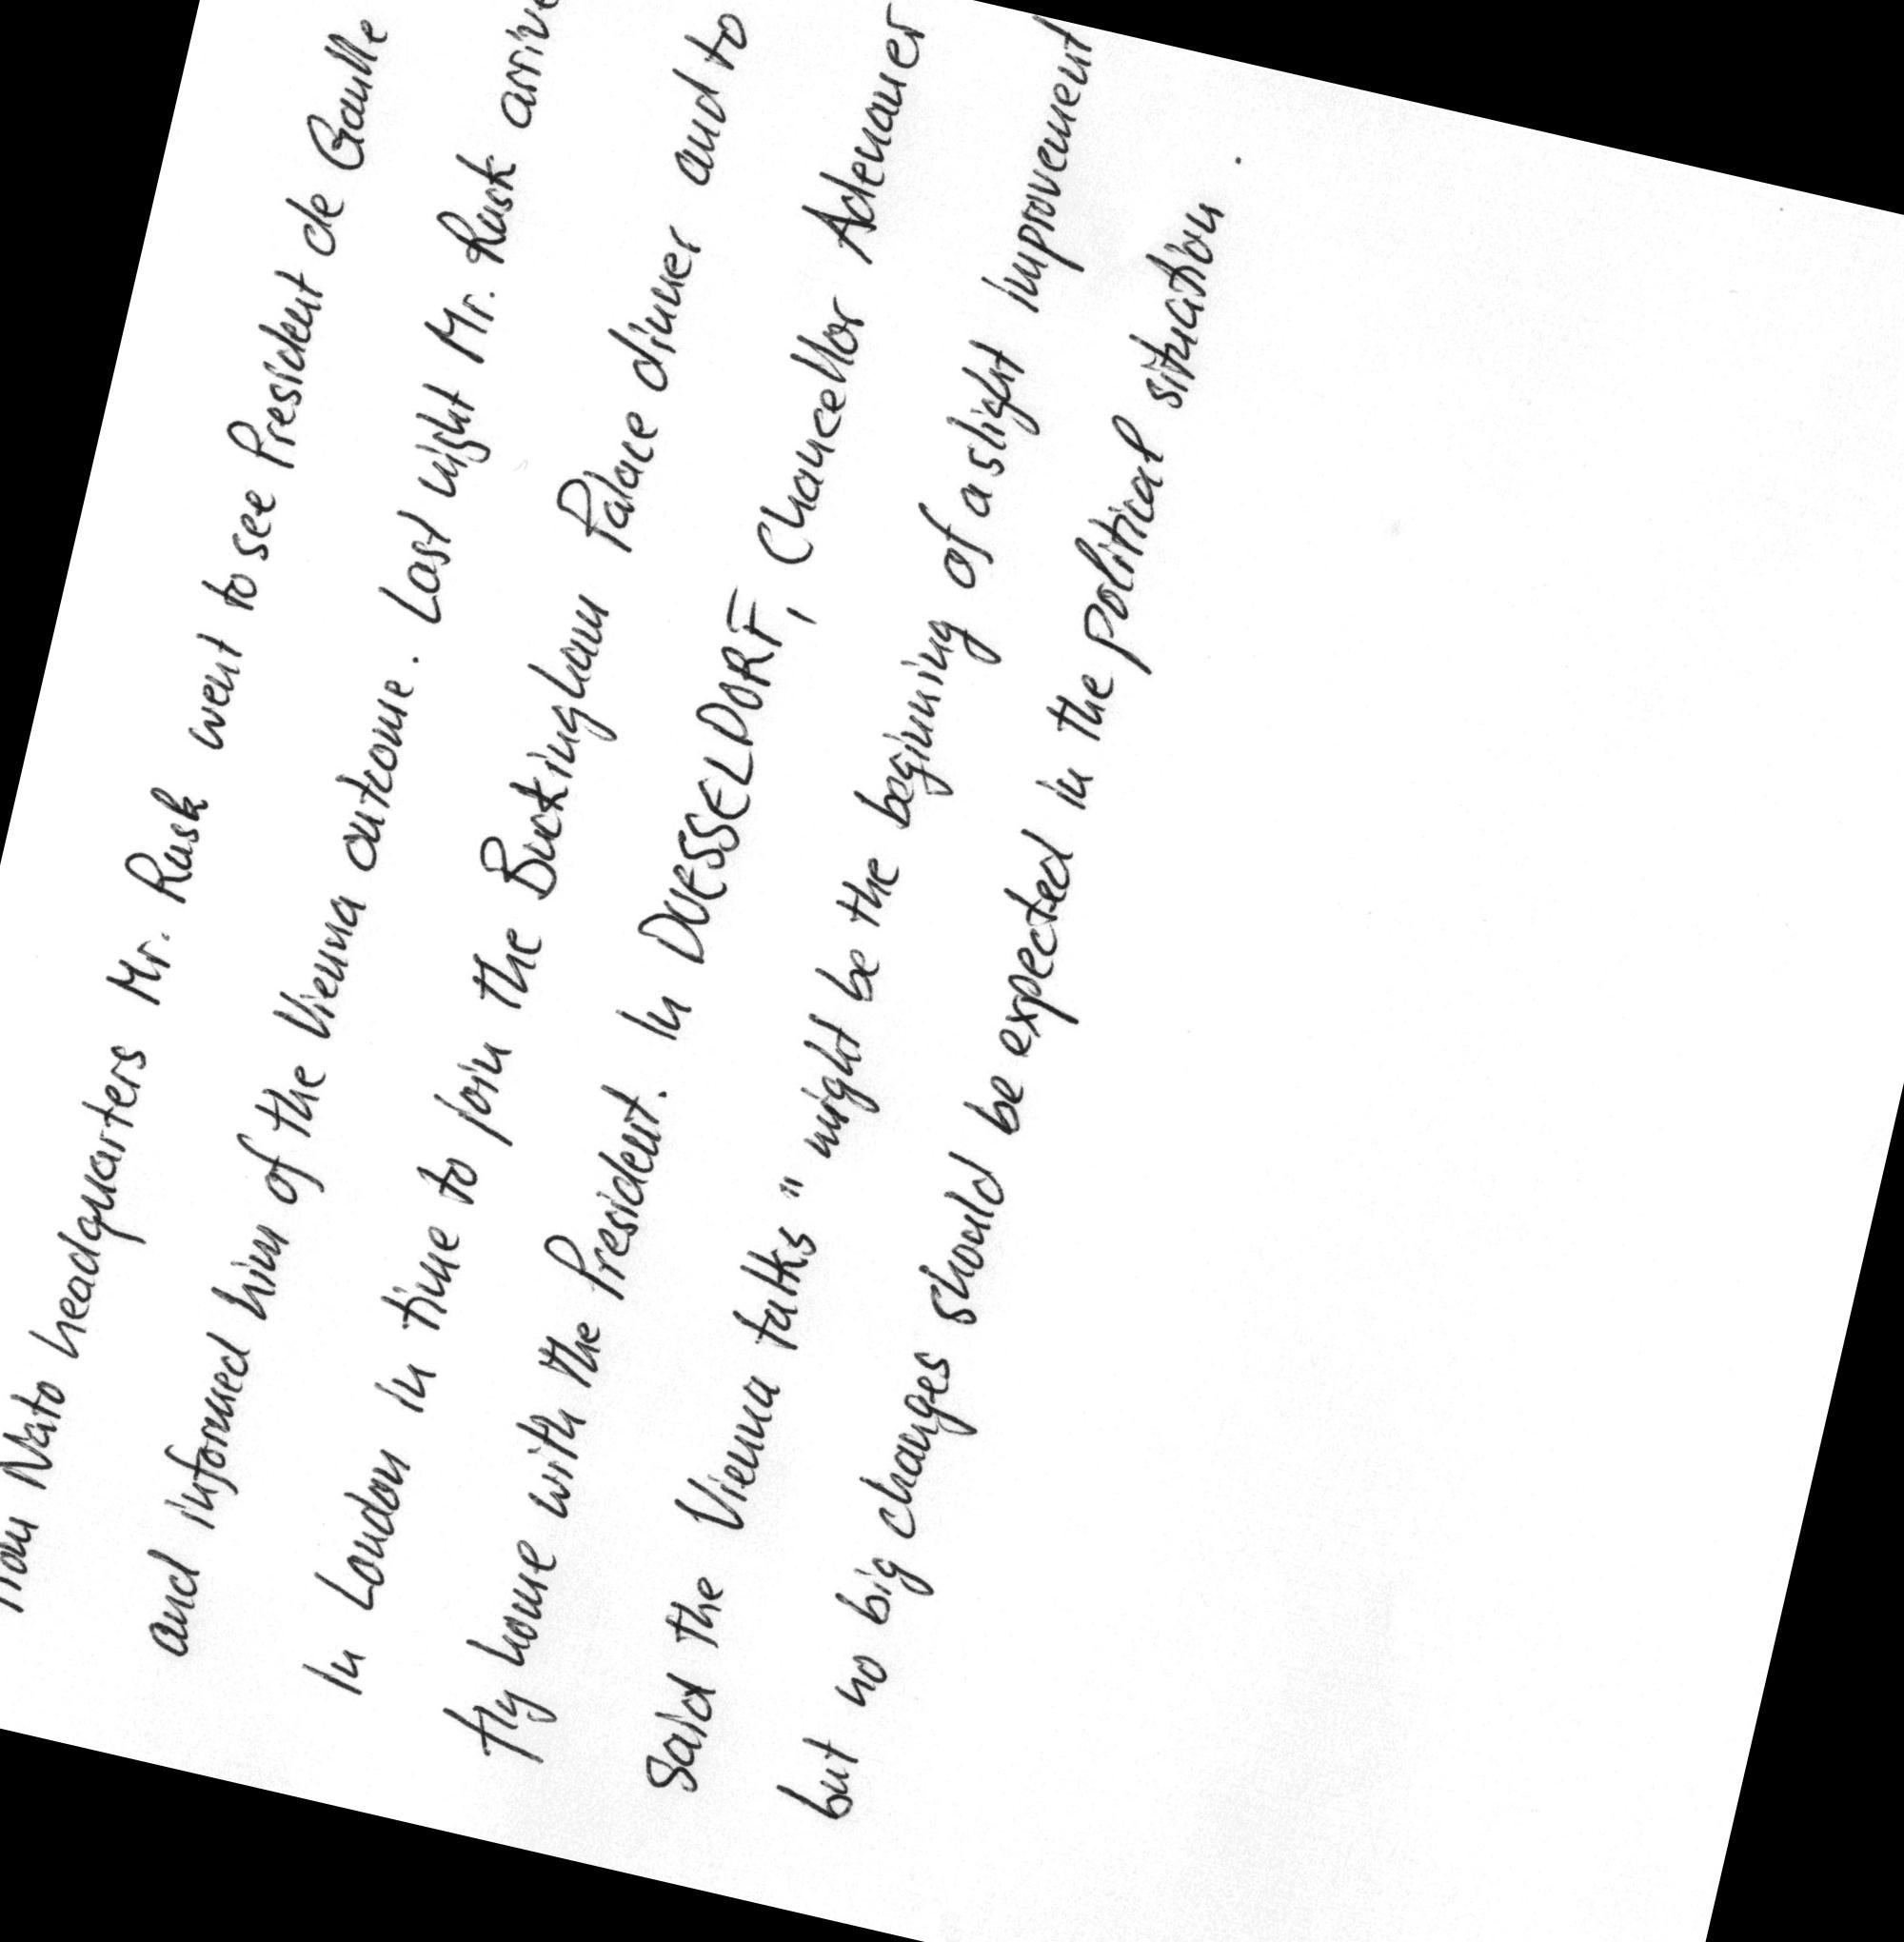 from Nato headquarters Mr. Rusk went to see President de Gaulle
and informed him of the Vienna outcome. Last night Mr. Rusk
In London in time to join the Buckingham Palace dinner and to
fly home with the President. In DUESSELDORF, Chancellor Adenauer
said the Vienna talks " might be the beginning of a slight improvement
but no big changes should be expected in the political situation .